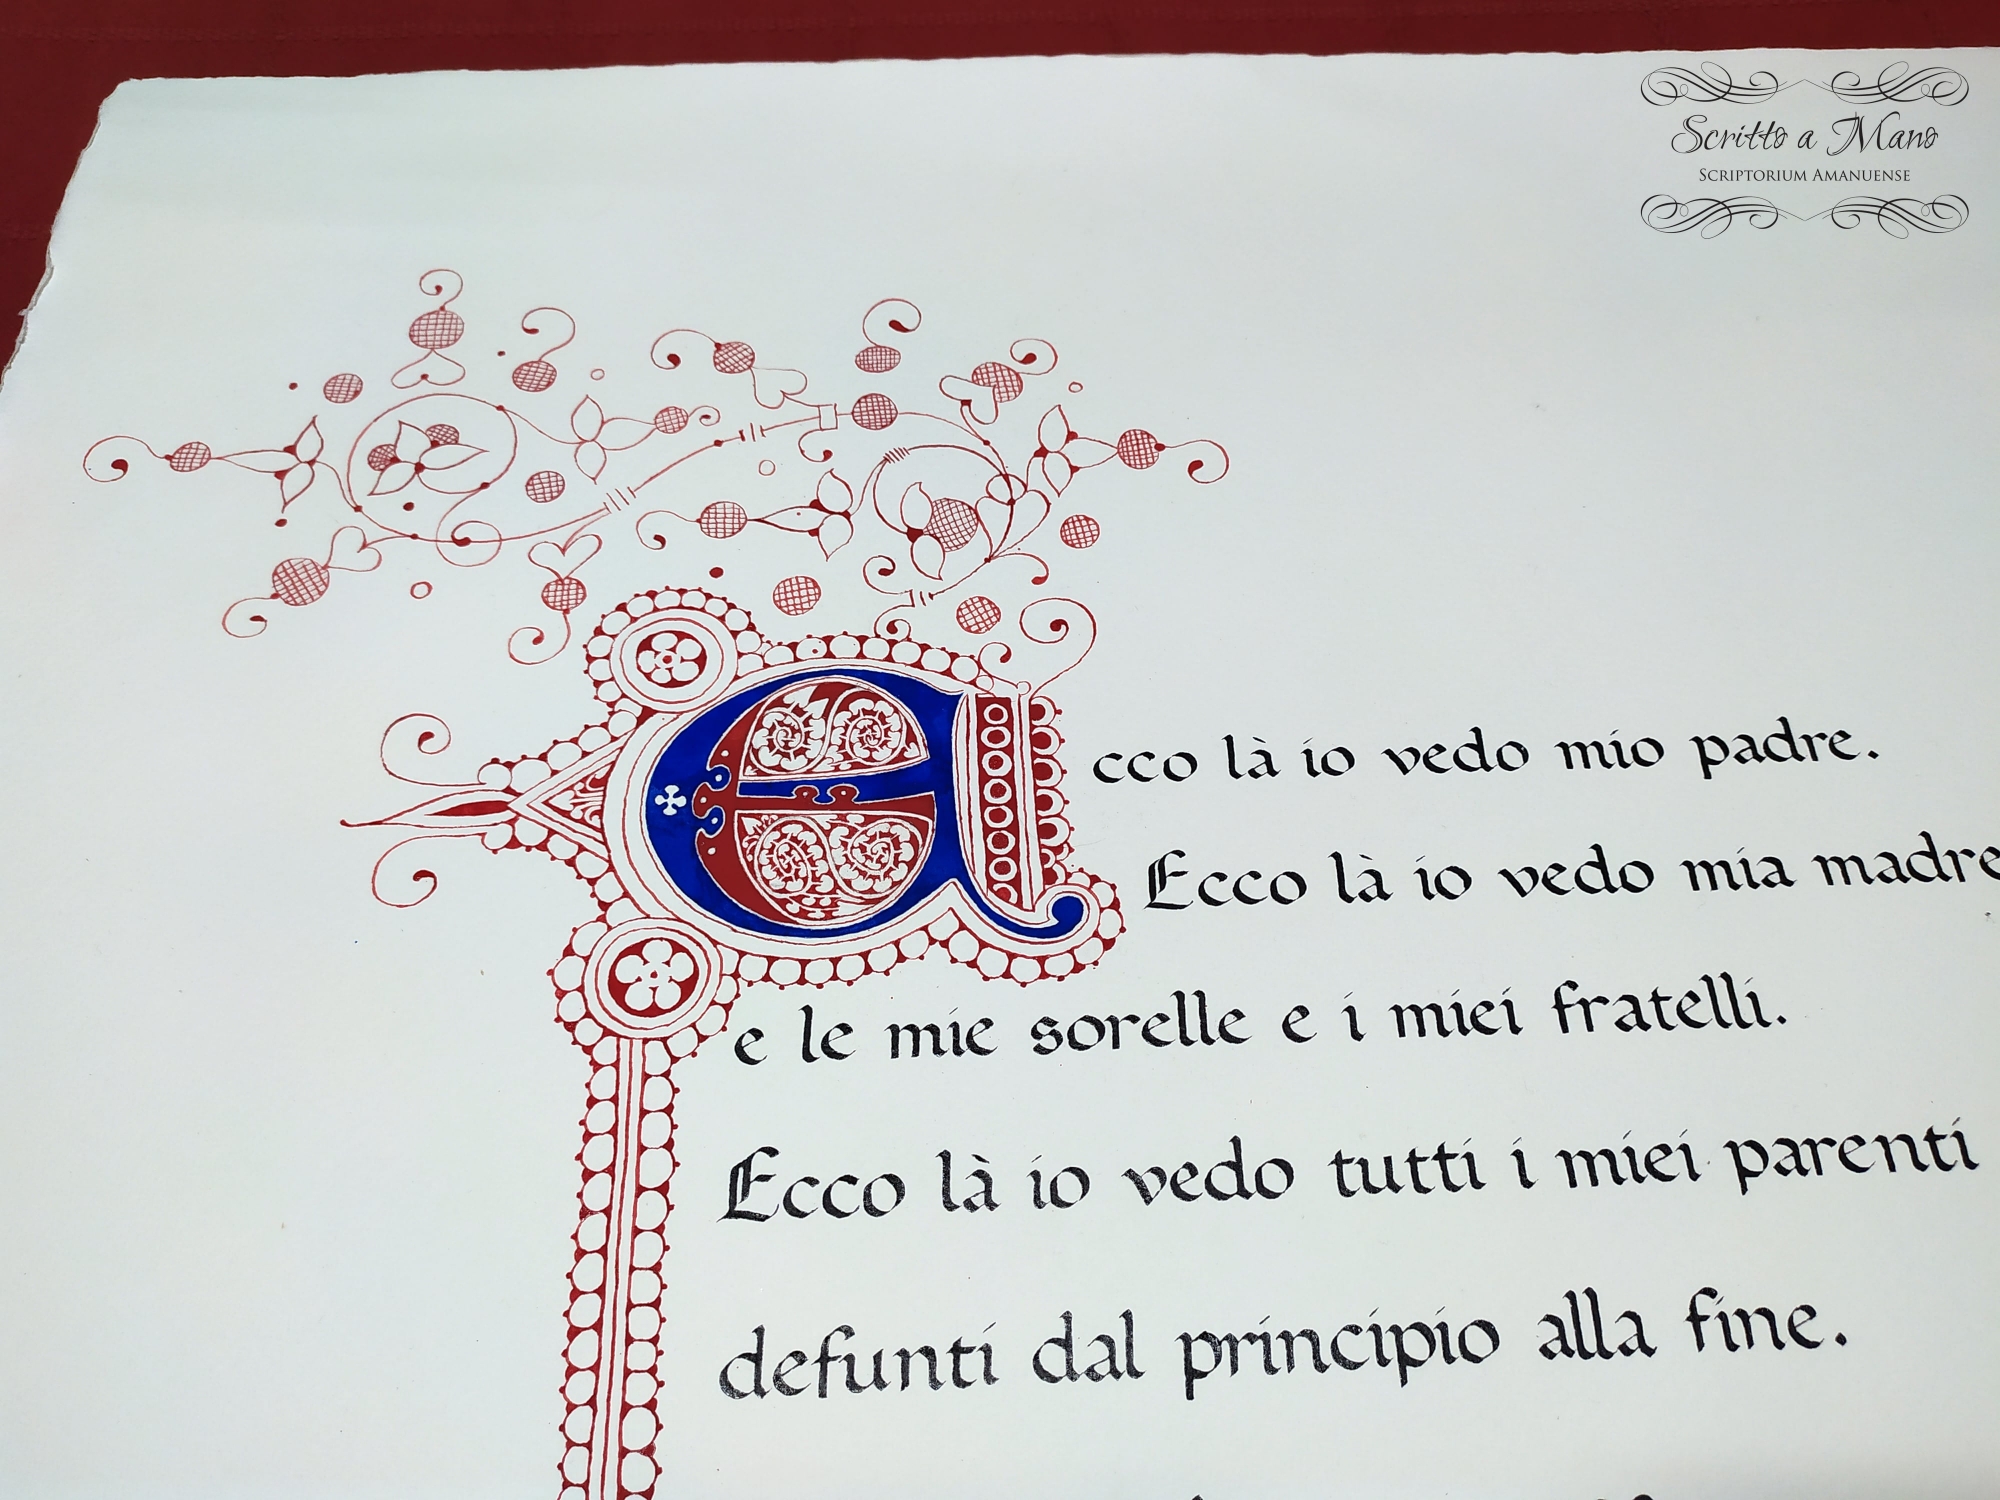 Scritto a Mano
Scriptorium Amanuense
Ecco là io vedo mio padre.
Ecco là io vedo mia madre
e le mie sorelle e i miei fratelli.
Ecco là io vedo tutti i miei parenti
defunti dal principio alla fine.